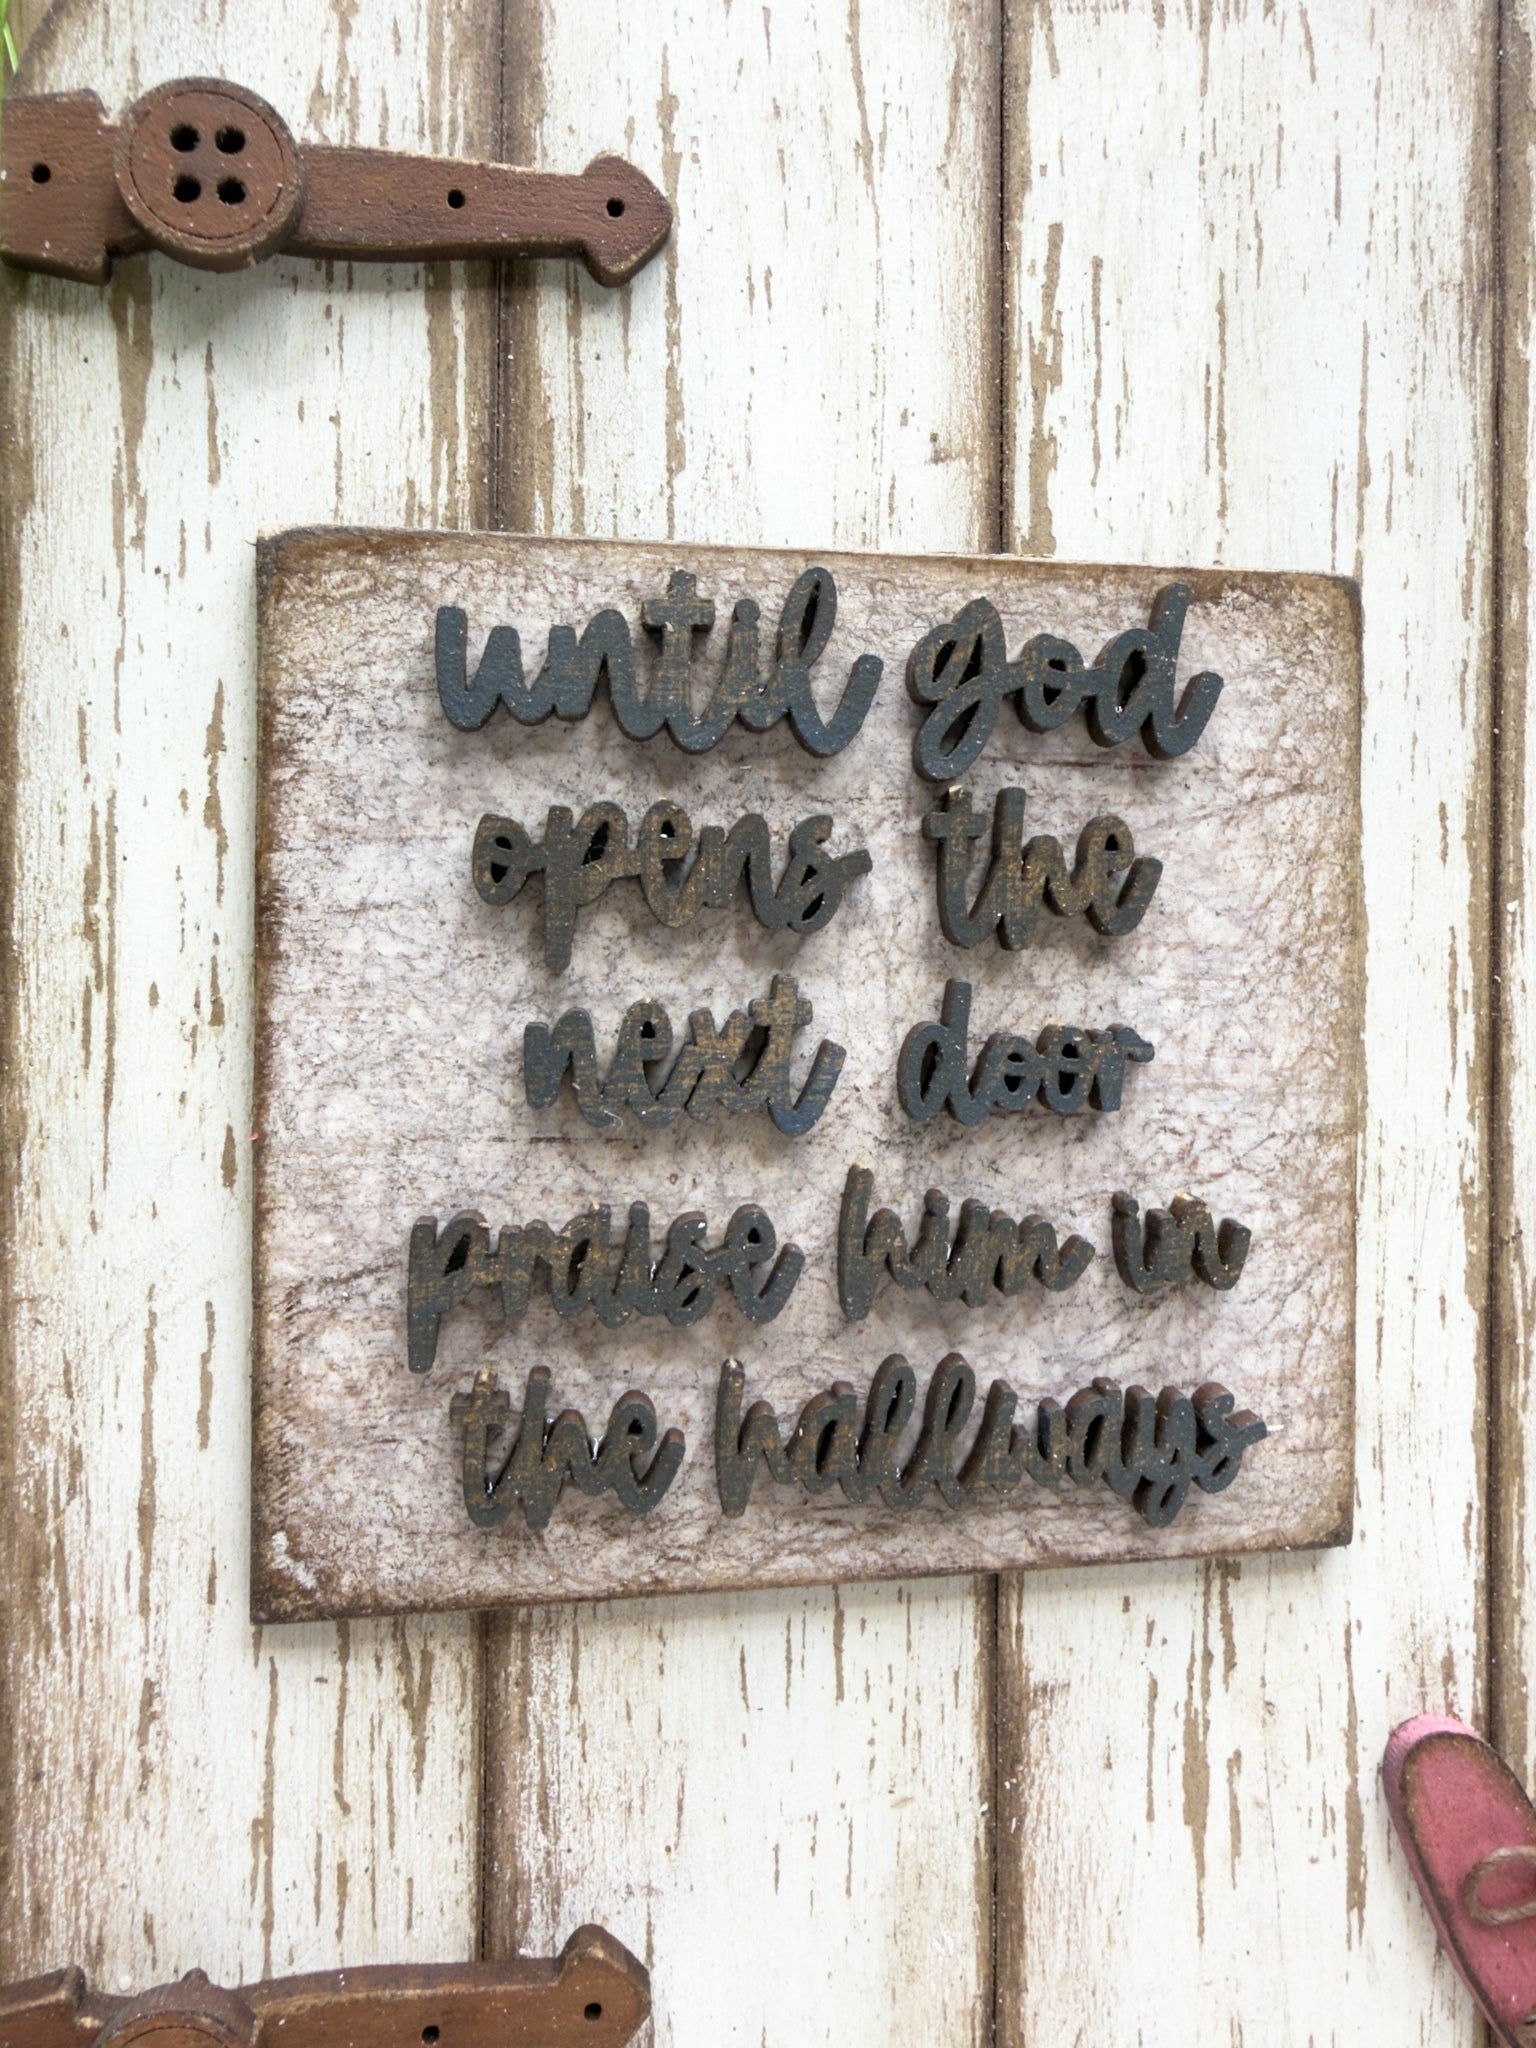 until god
opens the
next door
praise him in
the hallways